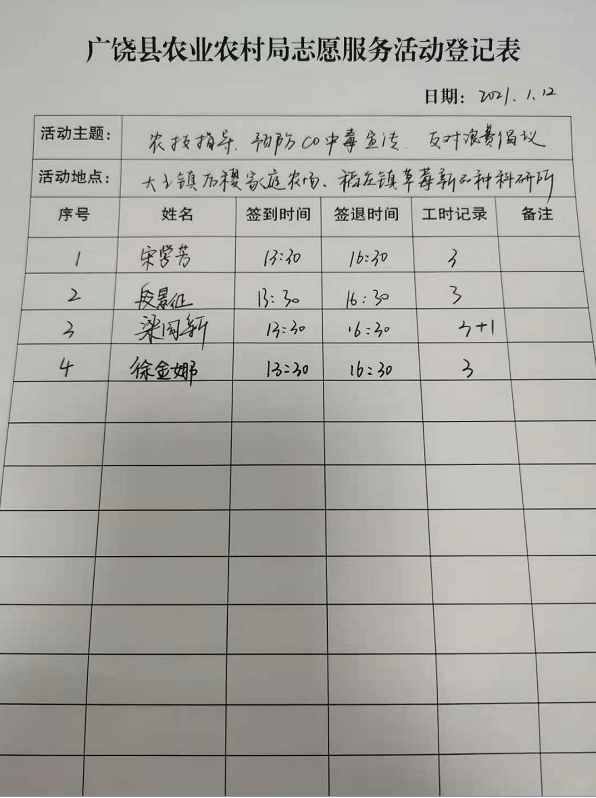 广饶县农业农村局志愿服务活动登记表
日期: 2021.1.12
活动主题: 农技指导、预防CO中毒宣传、反对浪费倡议
活动地点: 大王镇历稷家庭农场、稻庄镇草莓新品种科研所
序号 姓名 签到时间 签退时间 工时记录 备注
1 宋学芳 13:30 16:30 3
2 段景征 13:30 16:30 3
3 梁国新 13:30 16:30 3+1
4 徐金娜 13:30 16:30 3